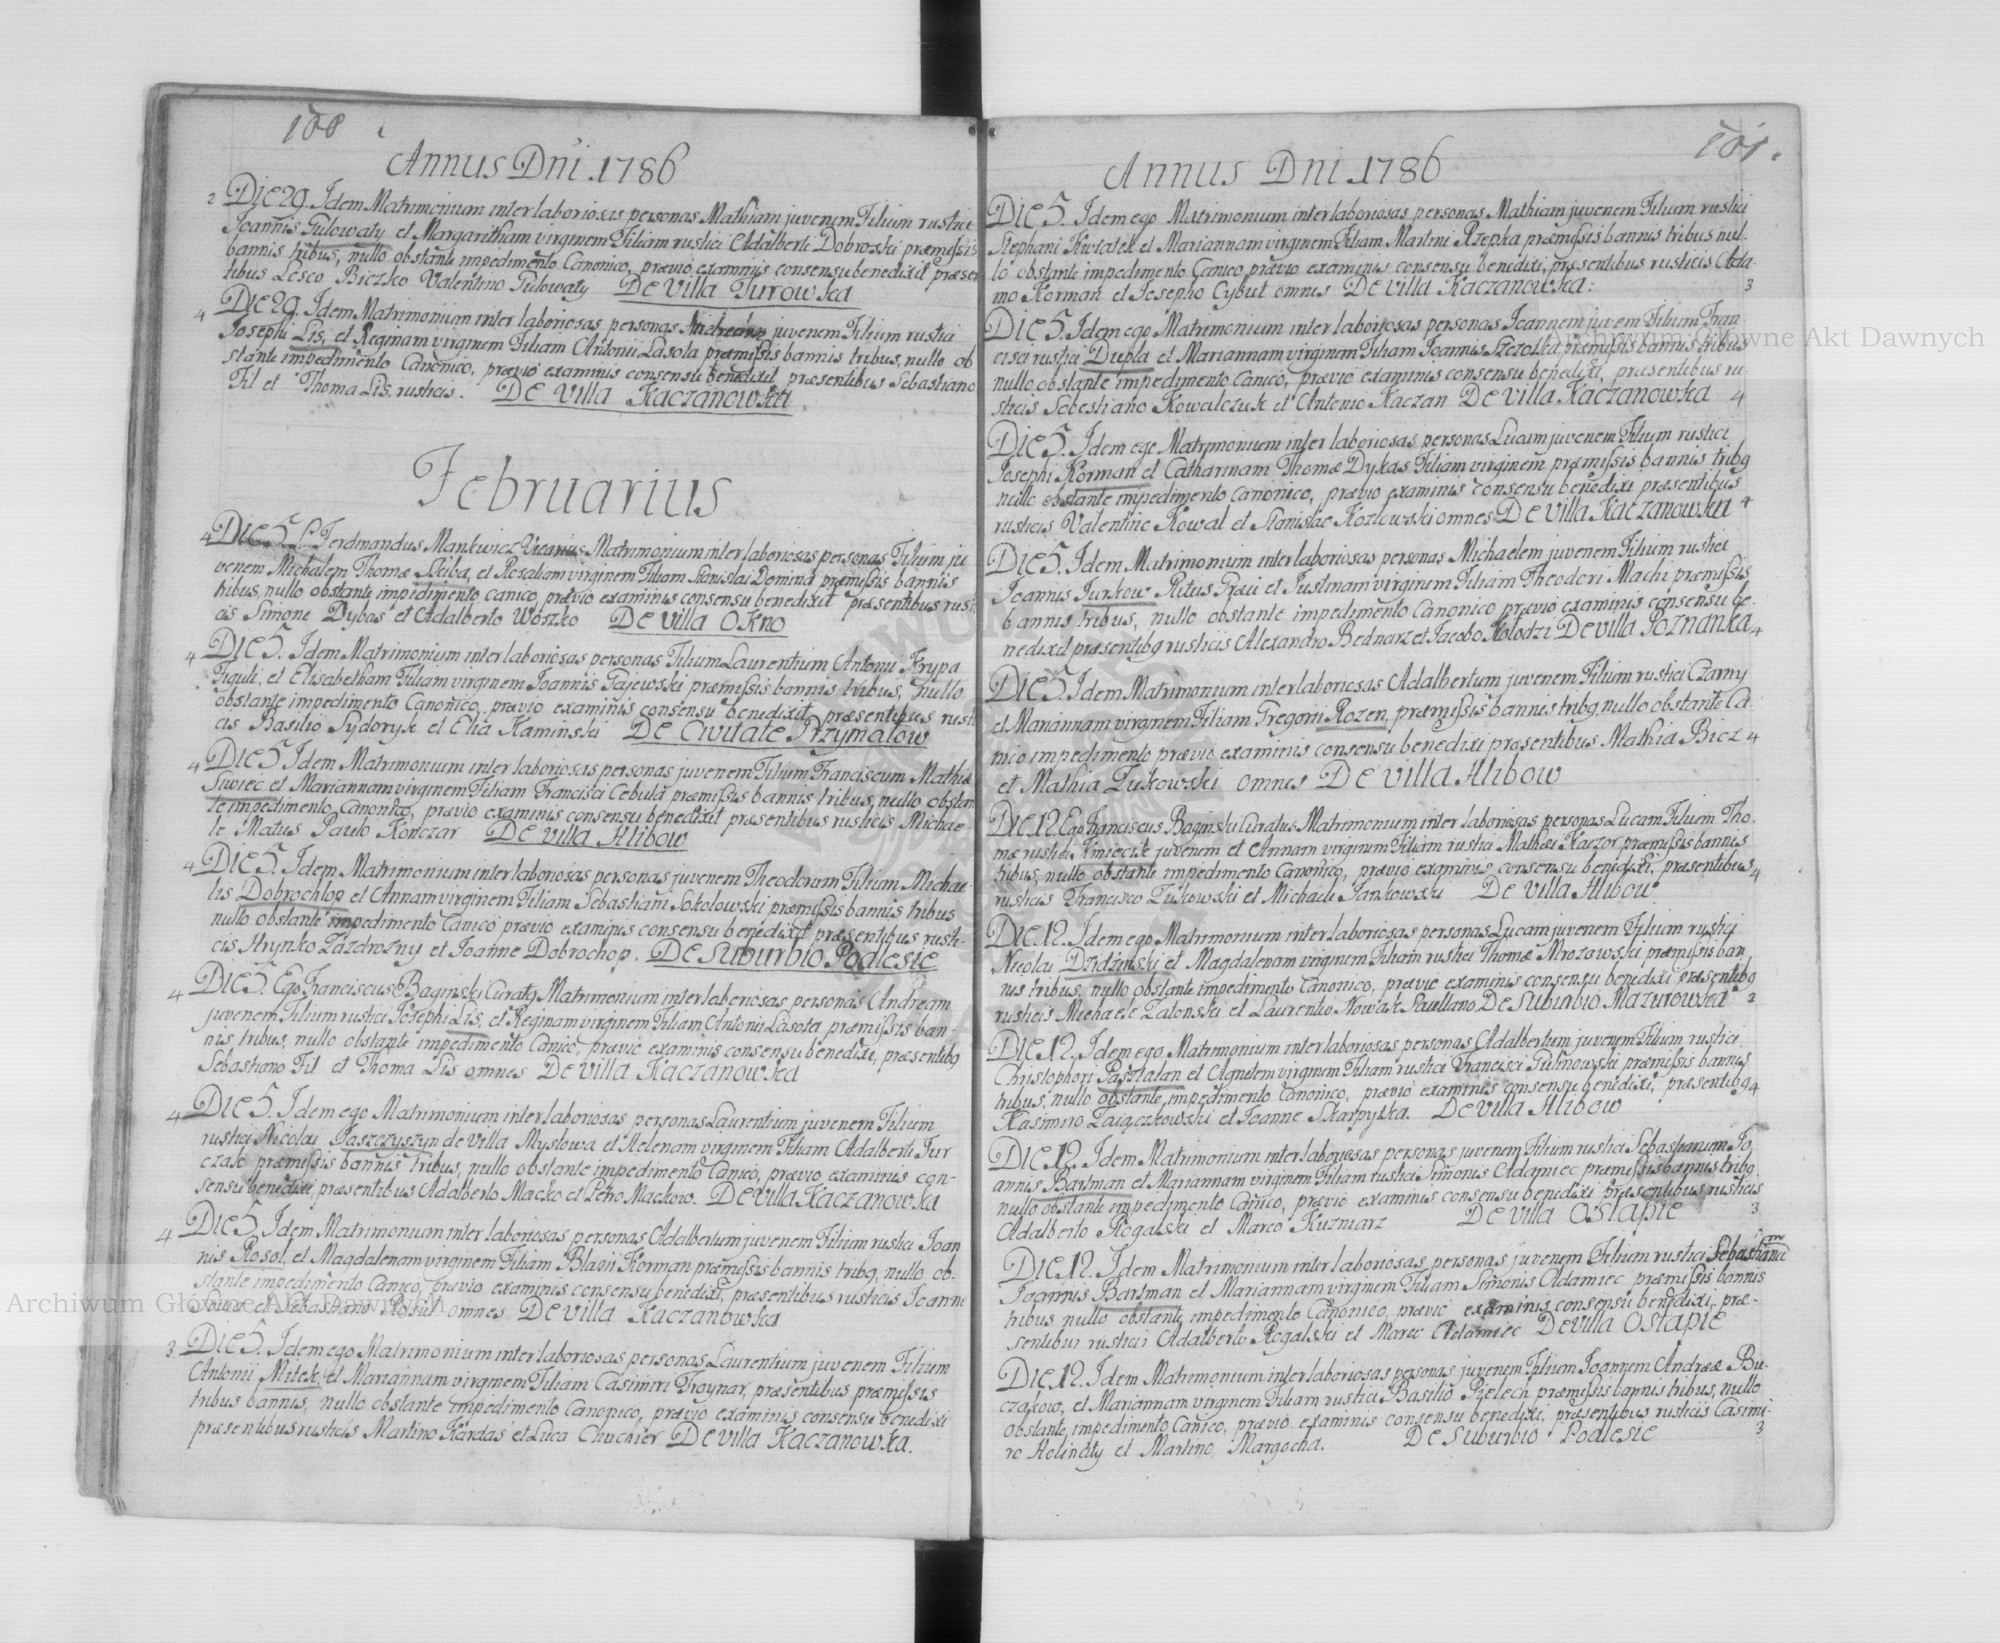 100
Annus Dni. 1786
2 Die 29. Idem Matrimonium inter laboriosas personas Mathiam juvenem Filium rustici
Joannis Gulowaty et Margaritham virginem Filiam rustici Adalberti Dobrozski præmissis
bannis tribus, nullo obstante impedimento Canonico, prævio examinis consensu benedixit præsen
tibus Lesco Biczko Valentino Gulowaty De Villa Turowka
4 Die 29. Idem Matrimonium inter laboriosas personas Andream juvenem Filium rustici
Josephi Lis, et Reginam virginem Filiam Antonii Lasota præmissis bannis tribus, nullo ob
stante impedimento Canonico, prævio examinis consensu benedixit præsentibus Sebastiano
Fil et Thoma Lis rusticis. De Villa Kaczanowka
Februarius
4 Die 5. Ferdinandus Mankwicz Vicarius Matrimonium inter laboriosas personas Filium ju
venem Michalem Thomæ Skiba, et Rosaliam virginem Filiam Stanislai Domina præmissis bannis
tribus, nullo obstante impedimento canico, prævio examinis consensu benedixit præsentibus rusti
cis Simone Dybas et Adalberto Woszko De Villa Okno
4 Die 5. Idem Matrimonium inter laboriosas personas Filium Laurentium Antonii Krypa
Figuli, et Elisabetham Filiam virginem Joannis Gajewski præmissis bannis tribus, nullo
obstante impedimento Canonico, prævio examinis consensu benedixit præsentibus rusti
cis Basilio Sydoryk et Elia Kaminski De Civitate Grzymałow
4 Die 5. Idem Matrimonium inter laboriosas personas juvenem Filium Franciscum Mathiæ
Siwiec et Mariannam virginem Filiam Francisci Cebula præmissis bannis tribus, nullo obstan
te impedimento Canonico, prævio examinis consensu benedixit præsentibus rusticis Michae
le Matus Paulo Konczar De Villa Hlibow
4 Die 5. Idem Matrimonium inter laboriosas personas juvenem Theodorum Filium Michae
lis Dobrochlop et Annam virginem Filiam Sebastiani Sokolowski præmissis bannis tribus
nullo obstante impedimento Canico prævio examinis consensu benedixit præsentibus rusti-
cis Hrynko Zazdrozny et Joanne Dobrochop. De Suburbio Podlesie
4 Die 5. Ego Franciscus Baginski Curatq Matrimonium inter laboriosas personas Andream
juvenem Filium rustici Josephi Lis, et Reginam virginem Filiam Antonii Lasota præmissis ban-
nis, tribus, nullo obstante impedimento Canico, prævio examinis consensu benedixi, præsentibq
Sebastiano Fil et Thoma Lis omnes De Villa Kaczanowka
4 Die 5. Idem ego Matrimonium inter laboriosas personas Laurentium juvenem Filium
rustici Nicolai Jaszczyszyn de Villa Mysłowa et Helenam virginem Filiam Adalberti Jur
czak præmissis bannis tribus, nullo obstante impedimento Canico, prævio examinis con-
sensu benedixi, præsentibus Adalberto Macko et Petro Mackow. De Villa Kaczanowka
4 Die 5. Idem Matrimonium inter laboriosas personas Adalbertum juvenem Filium rustici Joan
nis Rosol, et Magdalenam virginem Filiam Blasii Korman præmissis bannis tribq, nullo ob-
stante impedimento Canico, prævio examinis consensu benedixi, præsentibus rusticis Joanne
et Sebastiano Rosul omnes De Villa Kaczanowka
3 Die 5. Idem ego Matrimonium inter laboriosas personas Laurentium juvenem Filium
Antonii Mitek, et Mariannam virginem Filiam Casimiri Troynar, præsentibus præmissis
tribus bannis, nullo obstante impedimento Canonico, prævio examinis consensu benedixi
præsentibus rusticis Martino Kardas et Luca Chuchier De Villa Kaczanowka.
101.
Annus Dni. 1786
Die 5. Idem ego Matrimonium inter laboriosas personas Mathiam juvenem Filium rustici
Stephani Kwiatek et Mariannam virginem Filiam Martini Rzepka præmissis bannis tribus nul-
lo obstante impedimento Canico prævio examinis consensu benedixi, præsentibus rusticis Ada-
mo Korman et Josepho Cybut omnes De Villa Kaczanowka: 3
Die 5. Idem ego Matrimonium inter laboriosas personas Joannem juvem Filium Fran
cisci rustici Dupla et Mariannam virginem Filiam Joannis præmissis bannis tribus
nullo obstante impedimento Canico, prævio examinis consensu benedixi, præsentibus ru-
sticis Sebestiano Kowalczuk et Antonio Kaczan De Villa Kaczanowka 4
Die 5. Idem ego Matrimonium inter laboriosas personas Lucam juvenem Filium rustici
Josephi Korman et Catharinam Thomæ Dykas Filiam virginem præmissis bannis tribq
nullo obstante impedimento Canonico, prævio examinis consensu benedixi præsentibus
rusticis Valentino Kowal et Stanislao Kozlowski omnes De Villa Kaczanowka 4
Die 5. Idem Matrimonium inter laboriosas personas Michaelem juvenem Filium rustici
Joannis Jurkow Ritus Græci et Justinam virginem Filiam Theodori Machi præmissis
bannis tribus, nullo obstante impedimento Canonico prævio examinis consensu be-
nedixit præsentibq rusticis Alexandro Bednarz et Jacobo Kołodzi De Villa Poznanka 4
Die 5. Idem Matrimonium inter laboriosas Adalbertum juvenem Filium rustici Czarny
et Mariannam virginem Filiam Gregorii Rozen, præmissis bannis tribq, nullo obstante Ca-
nico impedimento prævio examinis consensu benedixi præsentibus Mathia Bicz 4
et Mathia Zukowski omnes De Villa Hlibow
Die 12. Ego Franciscus Baginski Curatus Matrimonium inter laboriosas personas Lucam Filium Tho-
mæ rustici Kmiecik juvenem et Annam virginem Filiam rustici Mathæi Kaczor præmissis bannis
tribus, nullo obstante impedimento Canonico, prævio examinis consensu benedixi, præsentibus 4
rusticis Francisco Zukowski et Michaele Jankowski De Villa Hlibow.
Die 12. Idem ego Matrimonium inter laboriosas personas Lucam juvenem Filium rustici
Nicolai Dzidzinski et Magdalenam virginem Filiam rustici Thomæ Mrozowski præmissis ban
nis tribus, nullo obstante impedimento Canonico, prævio examinis consensu benedixi præsentibq
rusticis Michaele Zatonski et Laurentio Nowak De Suburbio Mazurowka 2
Die 12. Idem ego Matrimonium inter laboriosas personas Adalbertum juvenem Filium rustici
Christophori Paszkalan et Agnetem virginem Filiam rustici Francisci Gulinowski præmissis bannis
tribus, nullo obstante impedimento Canonico, prævio examinis consensu benedixi, præsentibq 4
Kasimiro Zaiączkowski et Joanne Skarpytka. De Villa Hlibow
Die 12. Idem Matrimonium inter laboriosas personas juvenem Filium rustici Sebastianum Jo
annis Barsman et Mariannam virginem Filiam rustici Simonis Adamiec præmissis bannis tribq
nullo obstante impedimento Canico, prævio examinis consensu benedixi præsentibus rusticis
Adalberto Rogalski et Marco Kuzniarz De Villa Ostapie 3
Die 12. Idem Matrimonium inter laboriosas personas juvenem Filium rustici Sebastianum
Joannis Barsman et Mariannam virginem Filiam Simonis Adamiec præmissis bannis
tribus nullo obstante impedimento Canonico, prævio examinis consensu benedixi, præ-
sentibus rusticis Adalberto Rogalski et Marco Adamiec De Villa Ostapie
Die 12. Idem Matrimonium inter laboriosas personas juvenem Filium Joannem Andreæ Bu-
czakow, et Mariannam virginem Filiam rustici Basilio Pielech præmissis bannis tribus, nullo
obstante impedimento Canico, prævio examinis consensu benedixi, præsentibus rusticis Casimi-
ro Helinaty et Martino Margocha. De Suburbio Podlesie 3
Archiwum Główne Akt Dawnych
Archiwum Główne Akt Dawnych